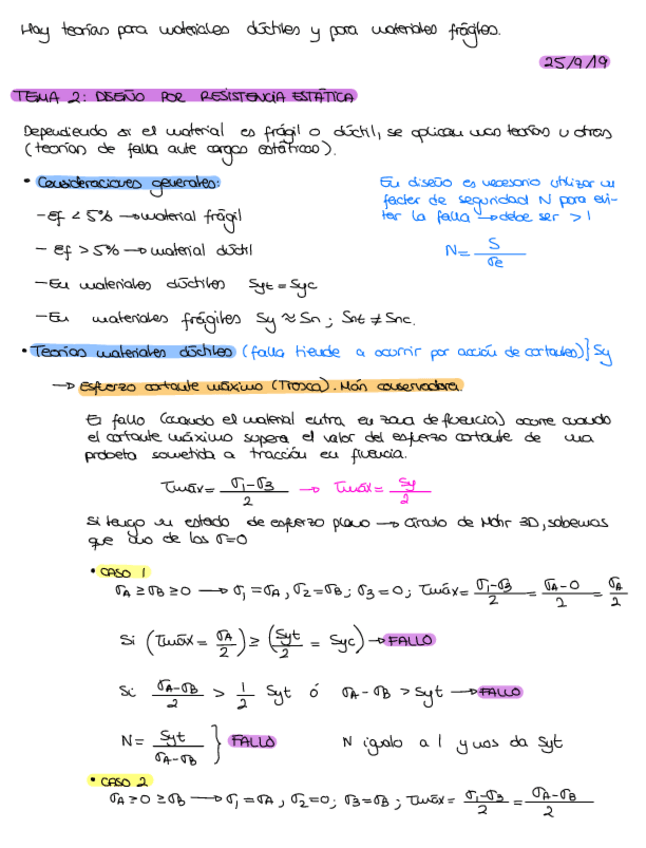 Hay teorías para materiales dúctiles y para materiales frágiles.
25/9/19
TEMA 2: DISEÑO POR RESISTENCIA ESTÁTICA
Dependiendo si el material es frágil o dúctil, se aplican unas teorías u otras
(teorías de falla ante cargas estáticas).
• Consideraciones generales:
- εf < 5% → material frágil
- εf > 5% → material dúctil
- En materiales dúctiles Syt = Syc
- En materiales frágiles Sy ≈ Sn ; Snt ≠ Snc.
En diseño es necesario utilizar un
factor de seguridad N para evi-
tar la falla → debe ser > 1
N = S / σe
• Teorías materiales dúctiles (falla tiende a ocurrir por acción de cortantes)} Sy
→ Esfuerzo cortante máximo (Tresca). Más conservadora.
El fallo (cuando el material entra en zona de fluencia) ocurre cuando
el cortante máximo supera el valor del esfuerzo cortante de una
probeta sometida a tracción en fluencia.
τmáx = σ1-σ3 / 2 → τmáx = Sy / 2
Si tengo un estado de esfuerzo plano → círculo de Mohr 3D, sabemos
que uno de los σ=0
• CASO 1
σA ≥ σB ≥ 0 → σ1 = σA, σ2 = σB; σ3 = 0; τmáx = σ1-σ3 / 2 = σA-0 / 2 = σA / 2
Si (τmáx = σA / 2) ≥ (Syt / 2 = Syc) → FALLO
Si σA-σB / 2 > 1 / 2 Syt ó σA - σB > Syt → FALLO
N = Syt / σA-σB } FALLO N igualo a 1 y nos da Syt
• CASO 2
σA ≥ 0 ≥ σB → σ1 = σA, σ2 = 0; σ3 = σB; τmáx = σ1-σ3 / 2 = σA-σB / 2